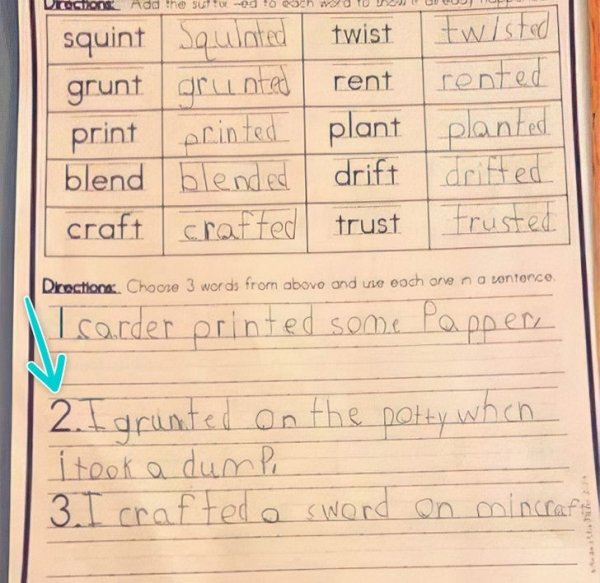 Directions: Add the suffix -ed to each word to show it already happened.
squint squinted twist twisted
grunt grunted rent rented
print printed plant planted
blend blended drift drifted
craft crafted trust trusted
Directions: Choose 3 words from above and use each one in a sentence.
1 carder printed some Papper,
2. I grunted on the potty when
i took a dump.
3. I crafted a sword on mincraf